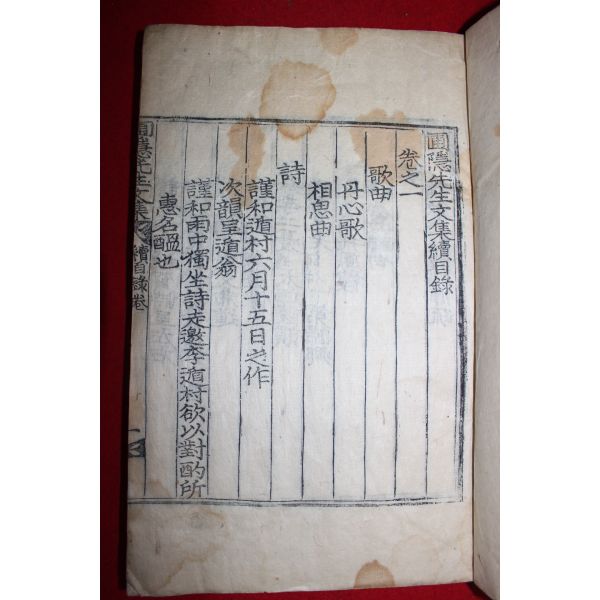 圃隱先生文集續目錄
卷之一
歌曲
丹心歌
相思曲
詩
謹和遁村六月十五日之作
次韻呈遁翁
謹和雨中獨坐詩走邀李遁村欲以對酌所
惠名醞也
圃隱先生文集 續目錄卷